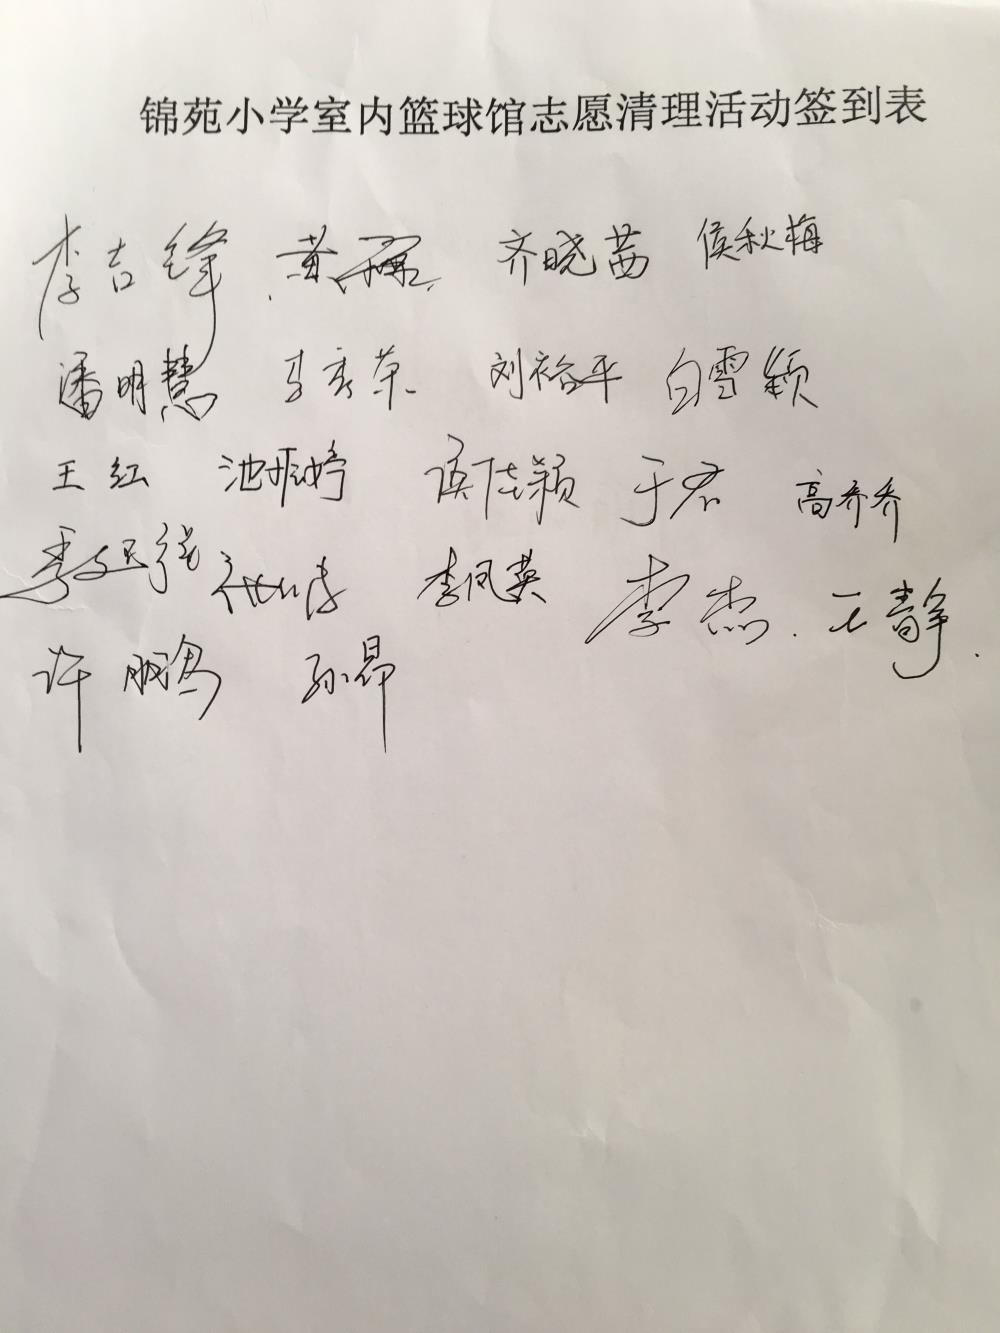 锦苑小学室内篮球馆志愿清理活动签到表
李吉锋 黄 齐晓茜 侯秋梅
潘明慧 刘裕平 白雪颖
王红 池雅婷 侯佳颖 于君 高乔乔
李凤英 李杰 王静
许鹏 孙昂